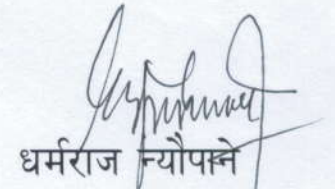 धर्मराज न्यौपाने